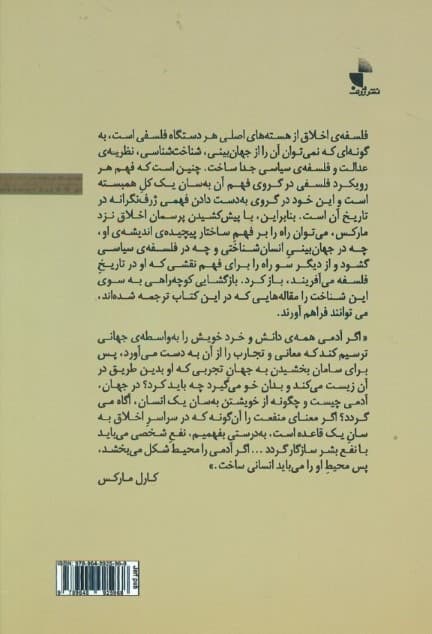 نشر ژرف
فلسفه‌ی اخلاق از هسته‌های اصلی هر دستگاه فلسفی است، به
گونه‌ای که نمی‌توان آن را از جهان‌بینی، شناخت‌شناسی، نظریه‌ی
عدالت و فلسفه‌ی سیاسی جدا ساخت. چنین است که فهم هر
رویکرد فلسفی در گروی فهم آن به‌سان یک کل همبسته
است و این خود در گروی به‌دست دادن فهمی ژرف‌نگرانه در
تاریخ آن است. بنابراین، با پیش‌کشیدن پرسمان اخلاق نزد
مارکس، می‌توان راه را بر فهم ساختار پیچیده‌ی اندیشه‌ی او،
چه در جهان‌بینی انسان‌شناختی و چه در فلسفه‌ی سیاسی
گشود و از دیگر سو راه را برای فهم نقشی که او در تاریخ
فلسفه می‌آفریند، باز کرد. بازگشایی کوچه‌راهی به سوی
این شناخت را مقاله‌هایی که در این کتاب ترجمه شده‌اند،
می توانند فراهم آورند.
«اگر آدمی همه‌ی دانش و خرد خویش را به‌واسطه‌ی جهانی
ترسیم کند که معانی و تجارب را از آن به دست می‌آورد، پس
برای سامان بخشیدن به جهان تجربی که او بدین طریق در
آن زیست می‌کند و بدان خو می‌گیرد چه باید کرد؟ در جهان،
آدمی چیست و چگونه از خویشتن به‌سان یک انسان، آگاه می
گردد؟ اگر معنای منفعت را آن‌گونه که در سراسر اخلاق به
سان یک قاعده است، به‌درستی بفهمیم، نفع شخصی می‌باید
با نفع بشر سازگار گردد ... اگر آدمی را محیط شکل می‌بخشد،
پس محیط او را می‌باید انسانی ساخت.»
کارل مارکس